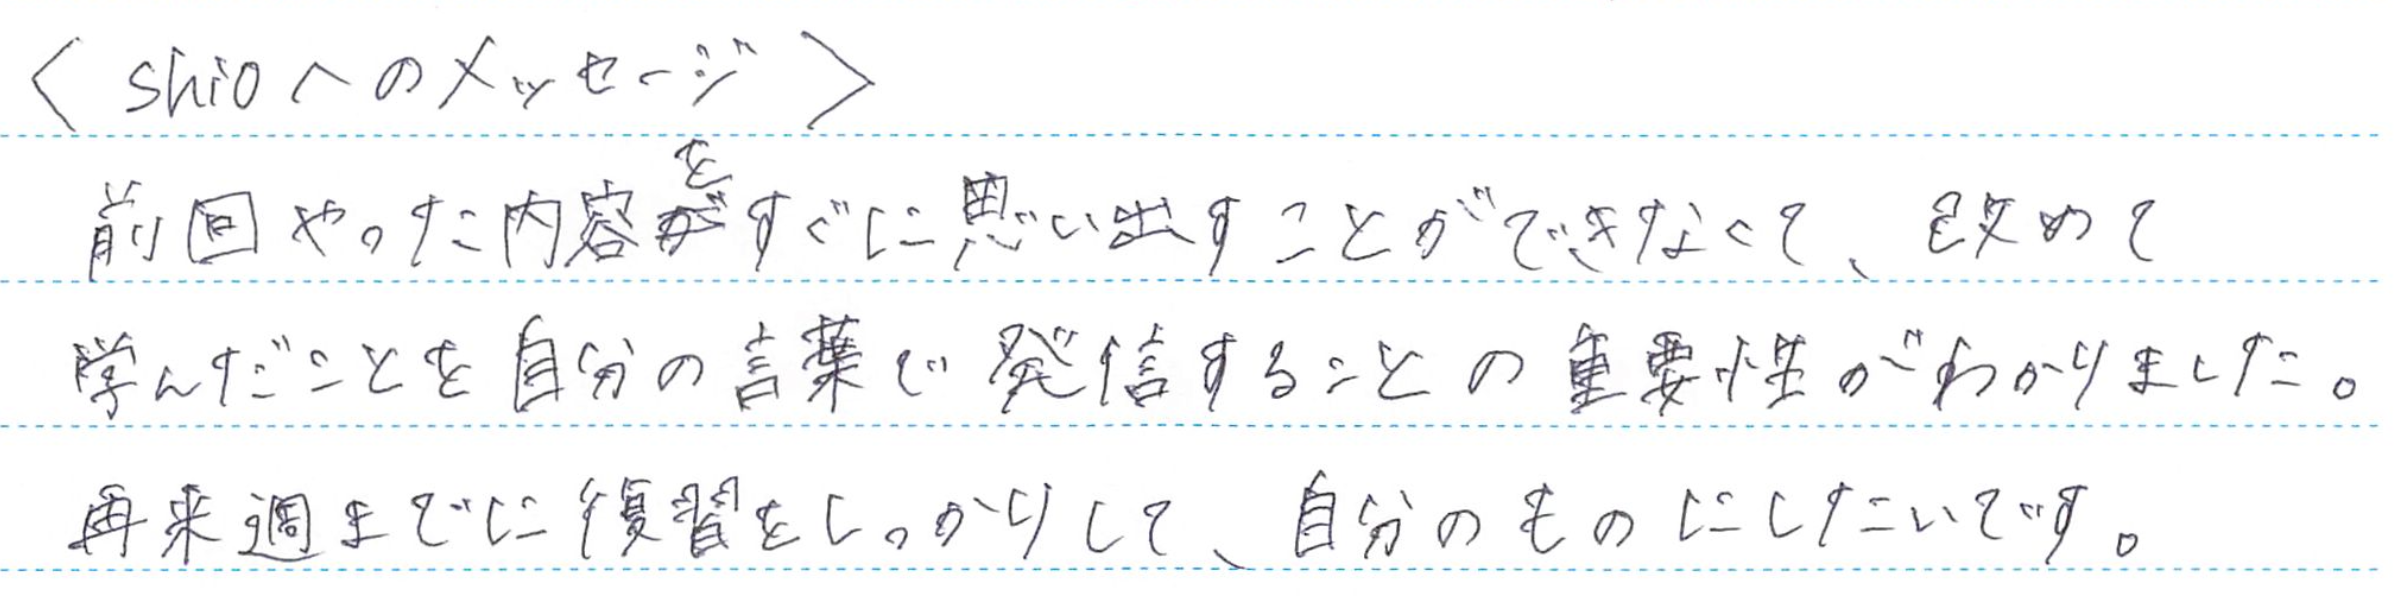 〈shioへのメッセージ〉
前回やった内容をすぐに思い出すことができなくて、改めて
学んだことを自分の言葉で発信することの重要性がわかりました。
再来週までに復習をしっかりして、自分のものにしたいです。